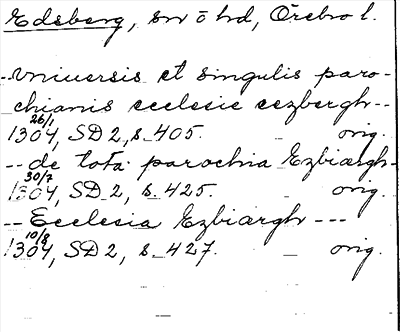 Edsberg, sn o hd, Örebro l.
--vniuersis et singulis paro-
chianis ecclesie eezbergh--
26/1
1304, SD 2, s. 405. orig.
-- de tota parochia Ezbiærgh-
30/7
1304, SD 2, s. 425. orig.
-- Ecclesia Ezbiærgh ---
10/8
1304, SD 2, s. 427. orig.